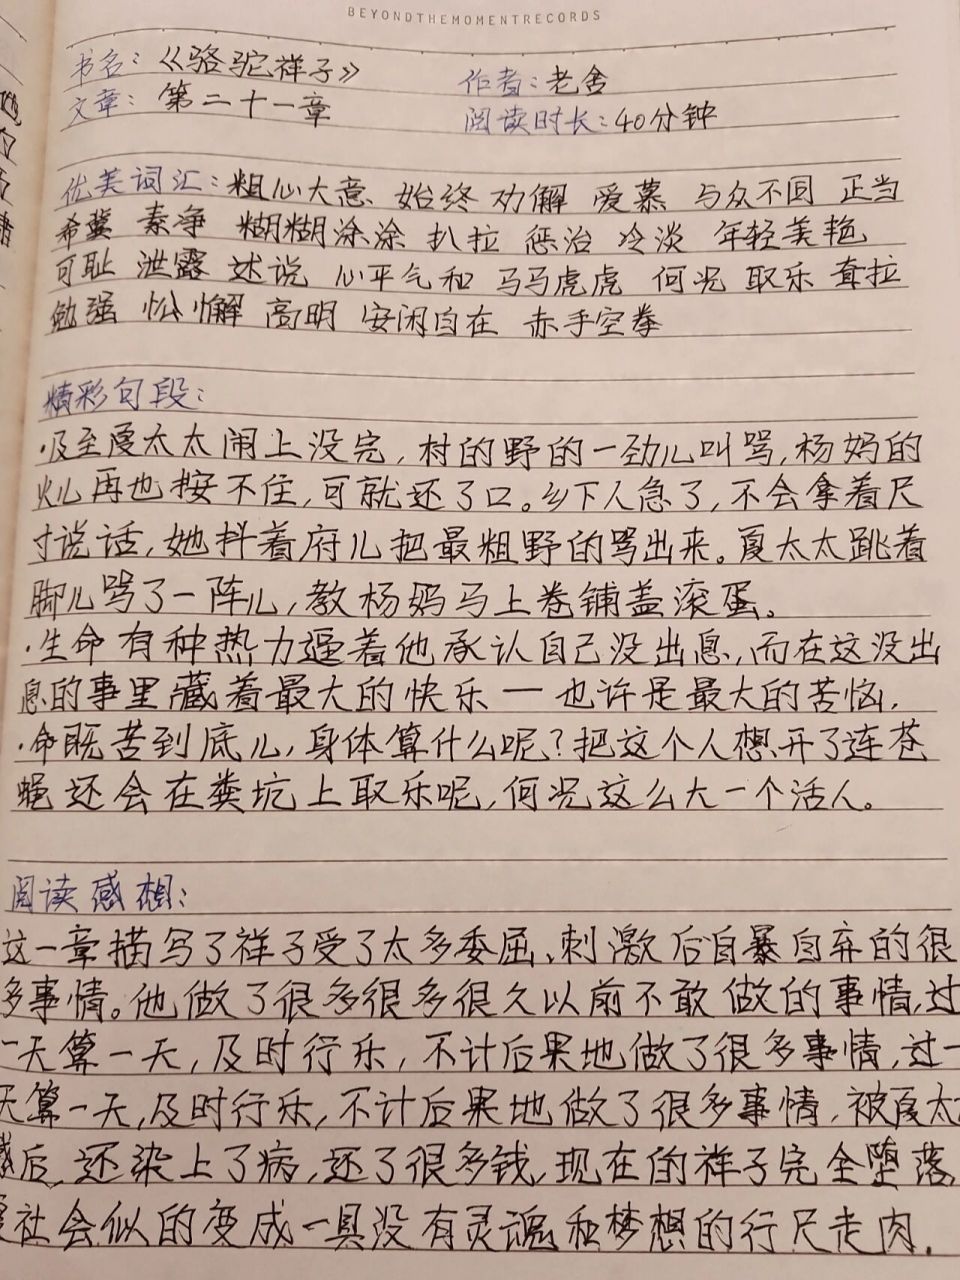 BEYONDTHEMOMENTRECORDS
书名：《骆驼祥子》 作者：老舍
文章：第二十一章 阅读时长：40分钟
优美词汇：粗心大意 始终 劝解 爱慕 与众不同 正当
希冀 素净 糊糊涂涂 扒拉 惩治 冷淡 年轻美艳
可耻 泄露 述说 心平气和 马马虎虎 何况 取乐 耷拉
勉强 松懈 高明 安闲自在 赤手空拳
精彩句段：
·及至夏太太闹上没完，村的野的一劲儿叫骂，杨妈的
火儿再也按不住，可就还了口。乡下人急了，不会拿着尺
寸说话，她抖着府儿把最粗野的骂出来。夏太太跳着
脚儿骂了一阵儿，教杨妈马上卷铺盖滚蛋。
·生命有种热力逼着他承认自己没出息，而在这没出
息的事里藏着最大的快乐一也许是最大的苦恼，
·命既苦到底儿，身体算什么呢？把这个人想开了连苍
蝇还会在粪坑上取乐呢，何况这么大一个活人。
阅读感想：
这一章描写了祥子受了太多委屈、刺激后自暴自弃的很
多事情。他做了很多很多很久以前不敢做的事情，过
一天算一天，及时行乐，不计后果地做了很多事情，过一
天算一天，及时行乐，不计后果地做了很多事情，被夏太
后，还染上了病，还了很多钱，现在的祥子完全堕落，
社会似的变成一具没有灵魂和梦想的行尸走肉，